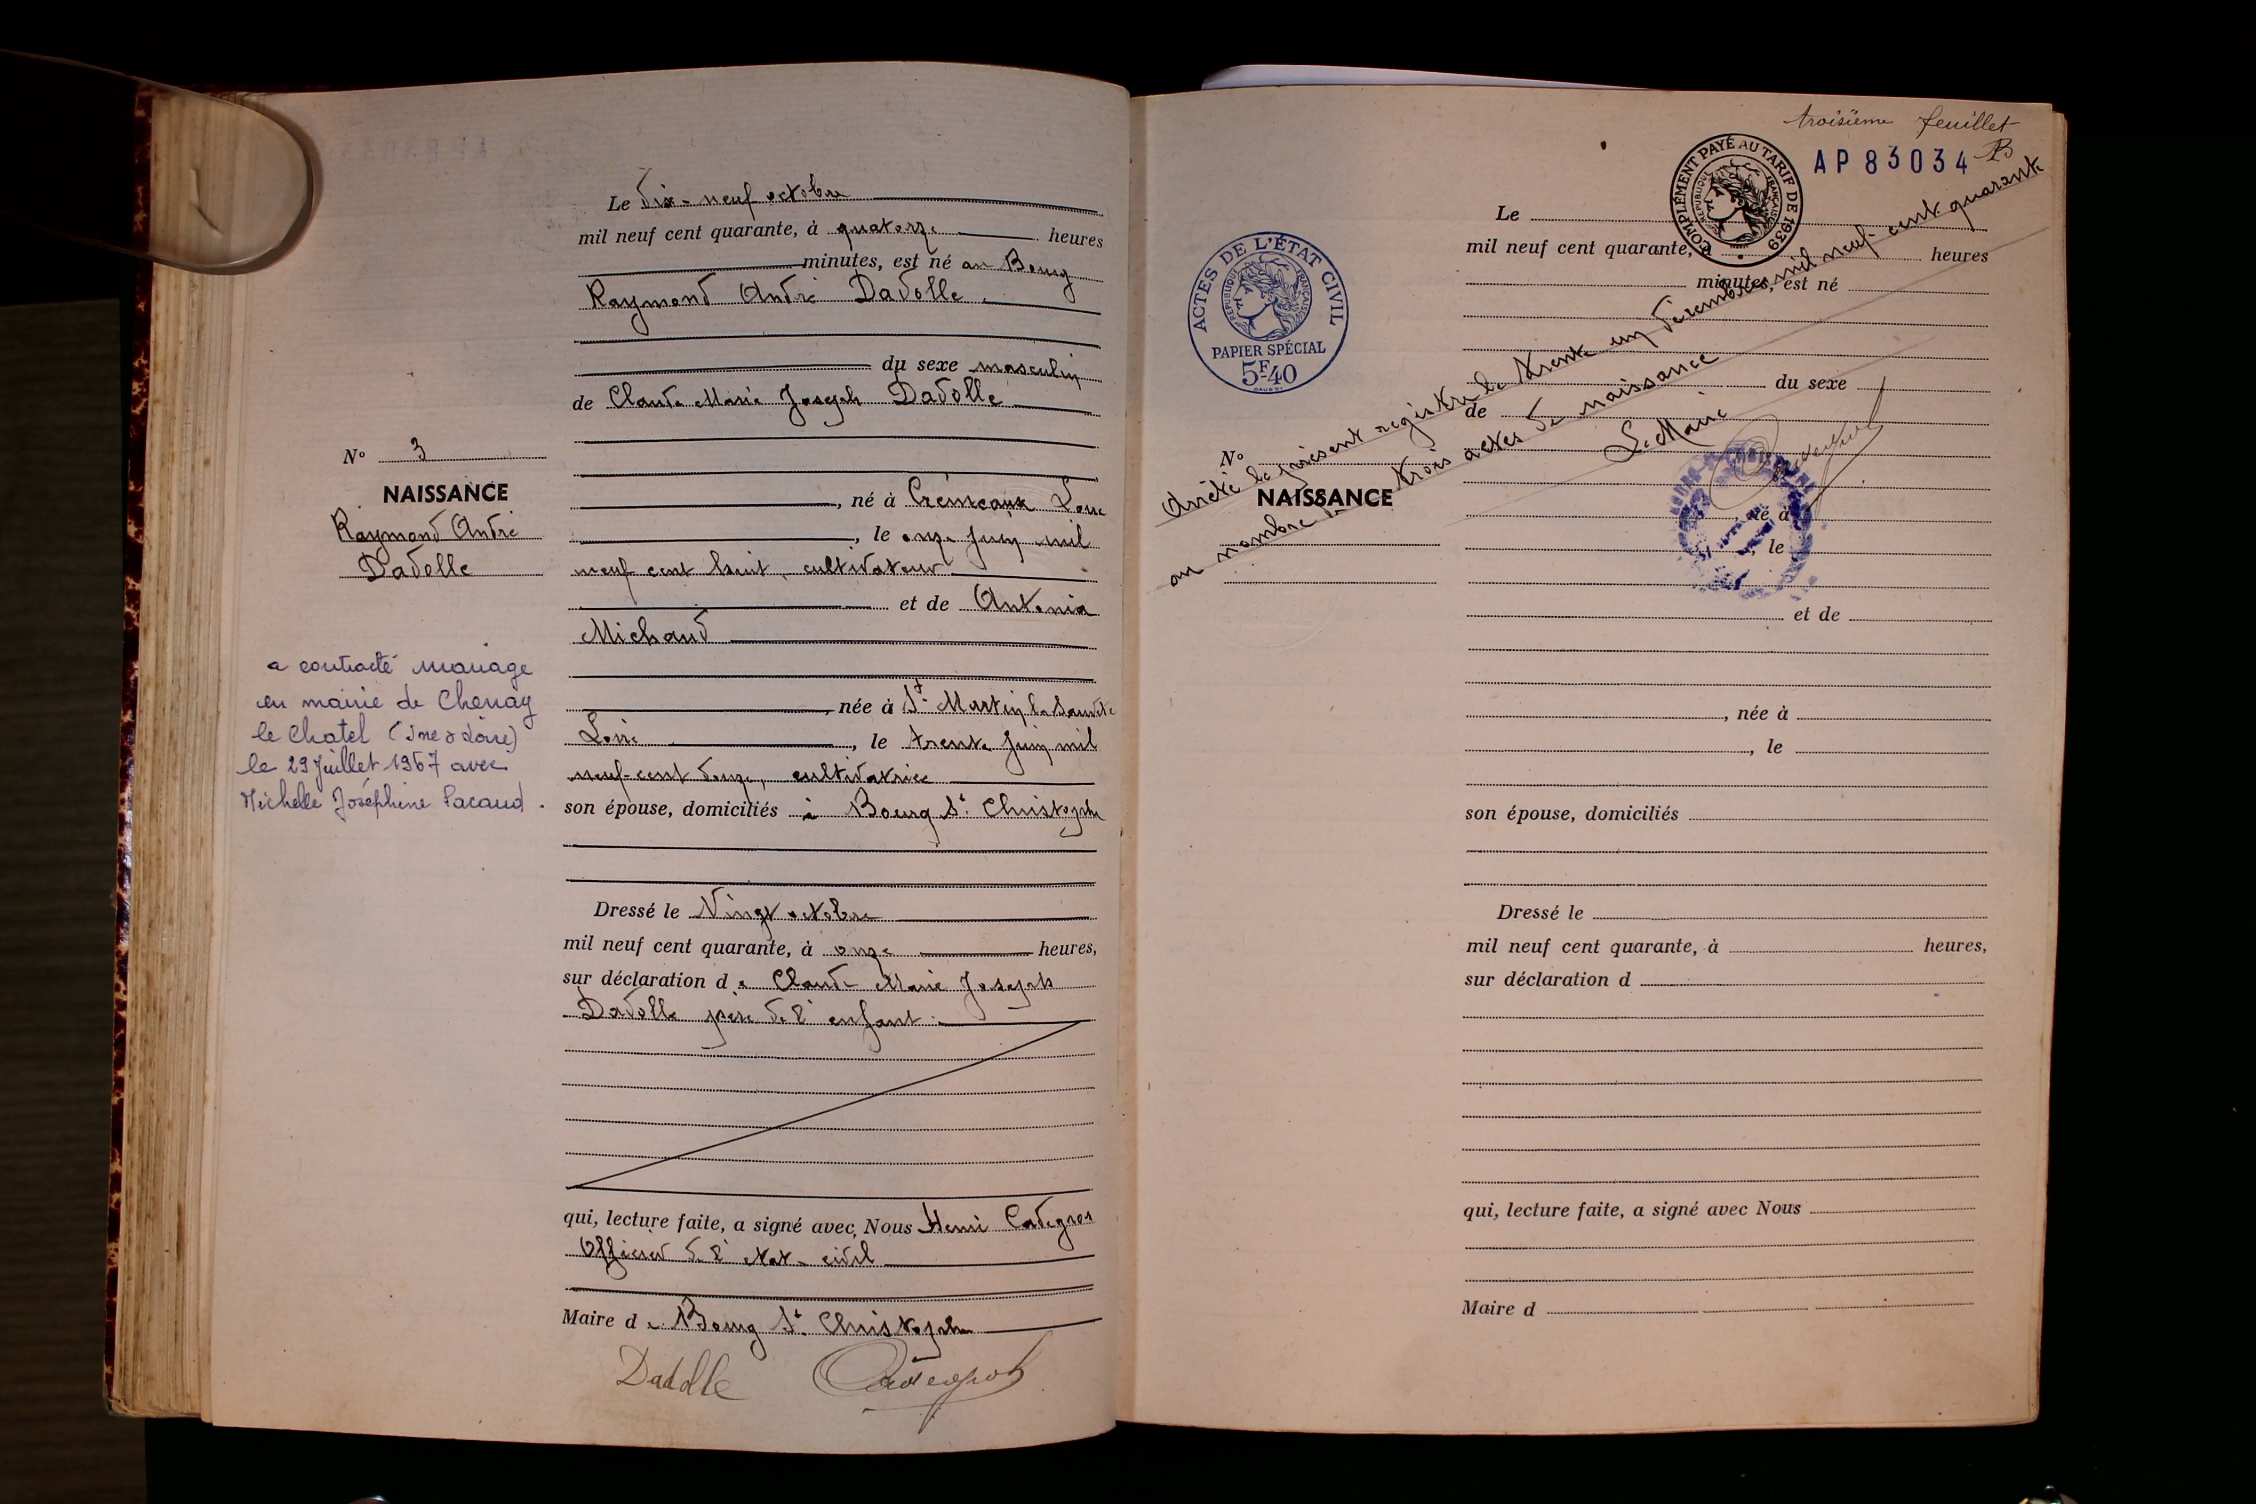 Le dix-neuf octobre
mil neuf cent quarante, à quatorze heures
minutes, est né au Bourg
Raymond André Dadolle
du sexe masculin
de Claude Marie Joseph Dadolle
N° 3
NAISSANCE
Raymond André
Dadolle
né à Crémeaux Loire
, le onze juin mil
neuf cent huit, cultivateur
et de Antonia
Michaud
, née à St Martin la Sauveté
Loire, le trente juin mil
neuf-cent douze, cultivatrice
son épouse, domiciliés à Bourg St Christophe
a contracté mariage
en mairie de Chenay
le Chatel (Sne & Loire)
le 29 Juillet 1967 avec
Michelle Joséphine Pacaud.
Dressé le Vingt octobre
mil neuf cent quarante, à onze heures,
sur déclaration de Claude Marie Joseph
Dadolle père de l'enfant.
qui, lecture faite, a signé avec Nous Henri Cadegros
Officier de l'etat-civil
Maire de Bourg St Christophe
Dadolle
troisième feuillet
AP 83034
COMPLÉMENT PAYÉ AU TARIF DE 1939
RÉPUBLIQUE FRANÇAISE
ACTES DE L'ÉTAT CIVIL
RÉPUBLIQUE FRANÇAISE
PAPIER SPÉCIAL
5F40
Le
mil neuf cent quarante, à heures
minutes, est né
du sexe
de
Arrêté le présent registre le trente un décembre mil neuf-cent quarante
au nombre de trois actes de naissance
Le Maire
N°
NAISSANCE
, né à
, le
et de
, née à
, le
son épouse, domiciliés
Dressé le
mil neuf cent quarante, à heures,
sur déclaration d
qui, lecture faite, a signé avec Nous
Maire d